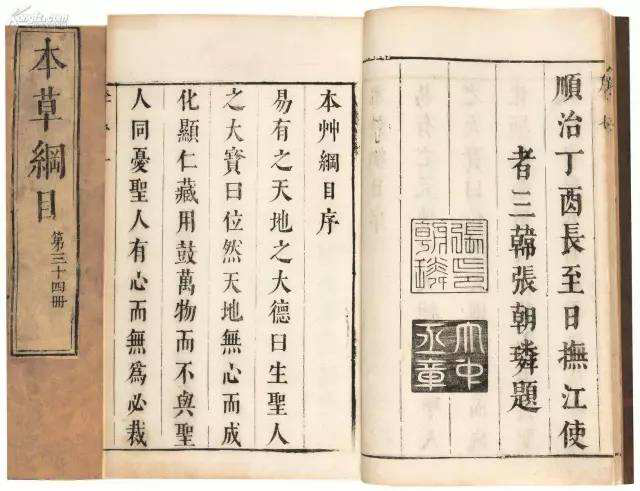 順治丁酉長至日撫江使
者三韓張朝璘題
張印
朝璘
大中
丞章
本艸綱目序
易有之天地之大德曰生聖人
之大寶曰位然天地無心而成
化顯仁藏用鼓萬物而不與聖
人同憂聖人有心而無爲必裁
本草綱目
第三十四冊